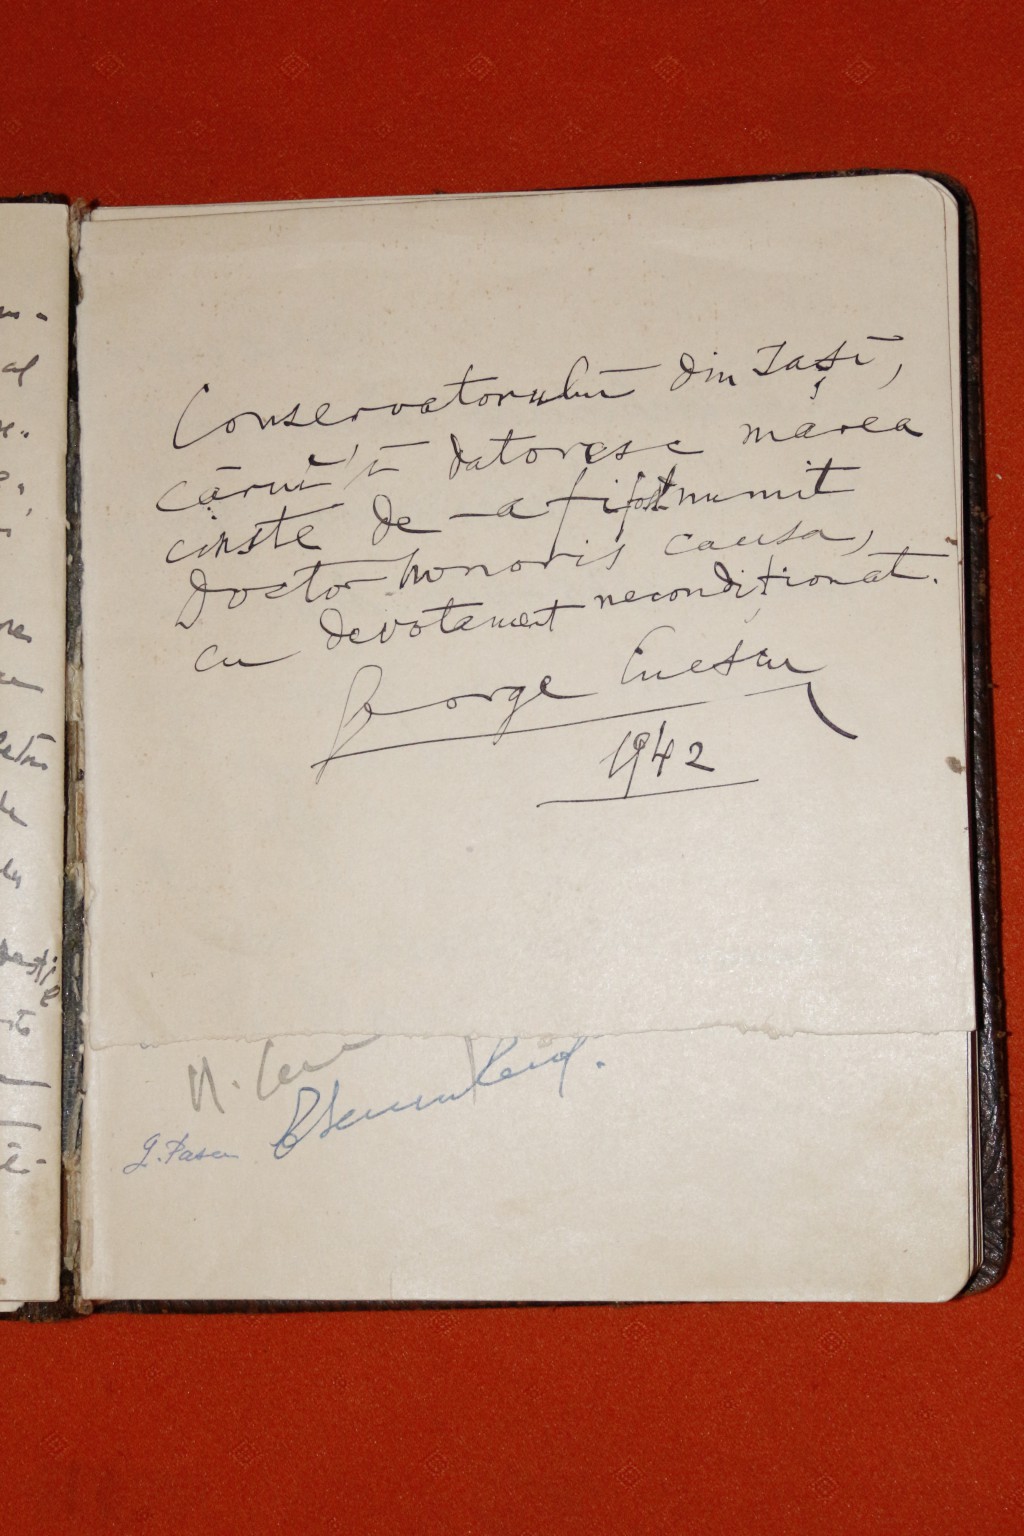 al
de
Conservatorului din Iași,
căruĭa'ĭ datoresc marea
cinste de-a fi fost numit
Doctor honoris causa,
cu devotament necondiționat.
George Enescu
1942
G. Pascu